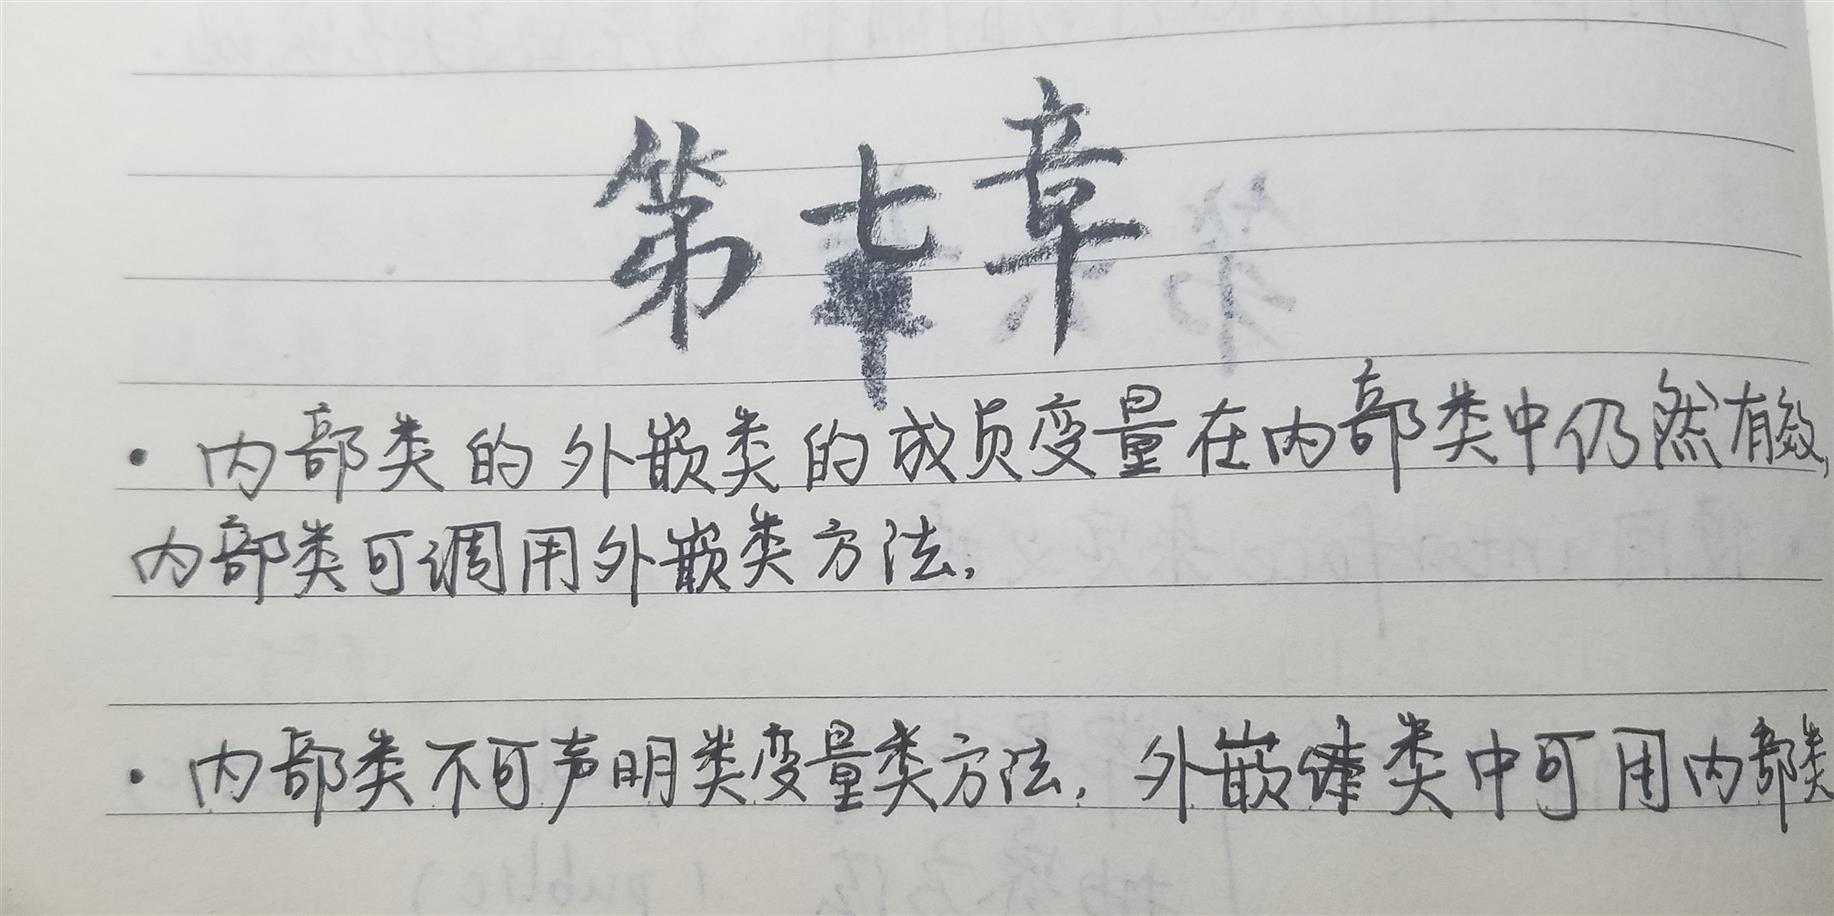 第七章
·内部类的外嵌类的成员变量在内部类中仍然有效,
内部类可调用外嵌类方法.
·内部类不可声明类变量类方法.外嵌类中可用内部类